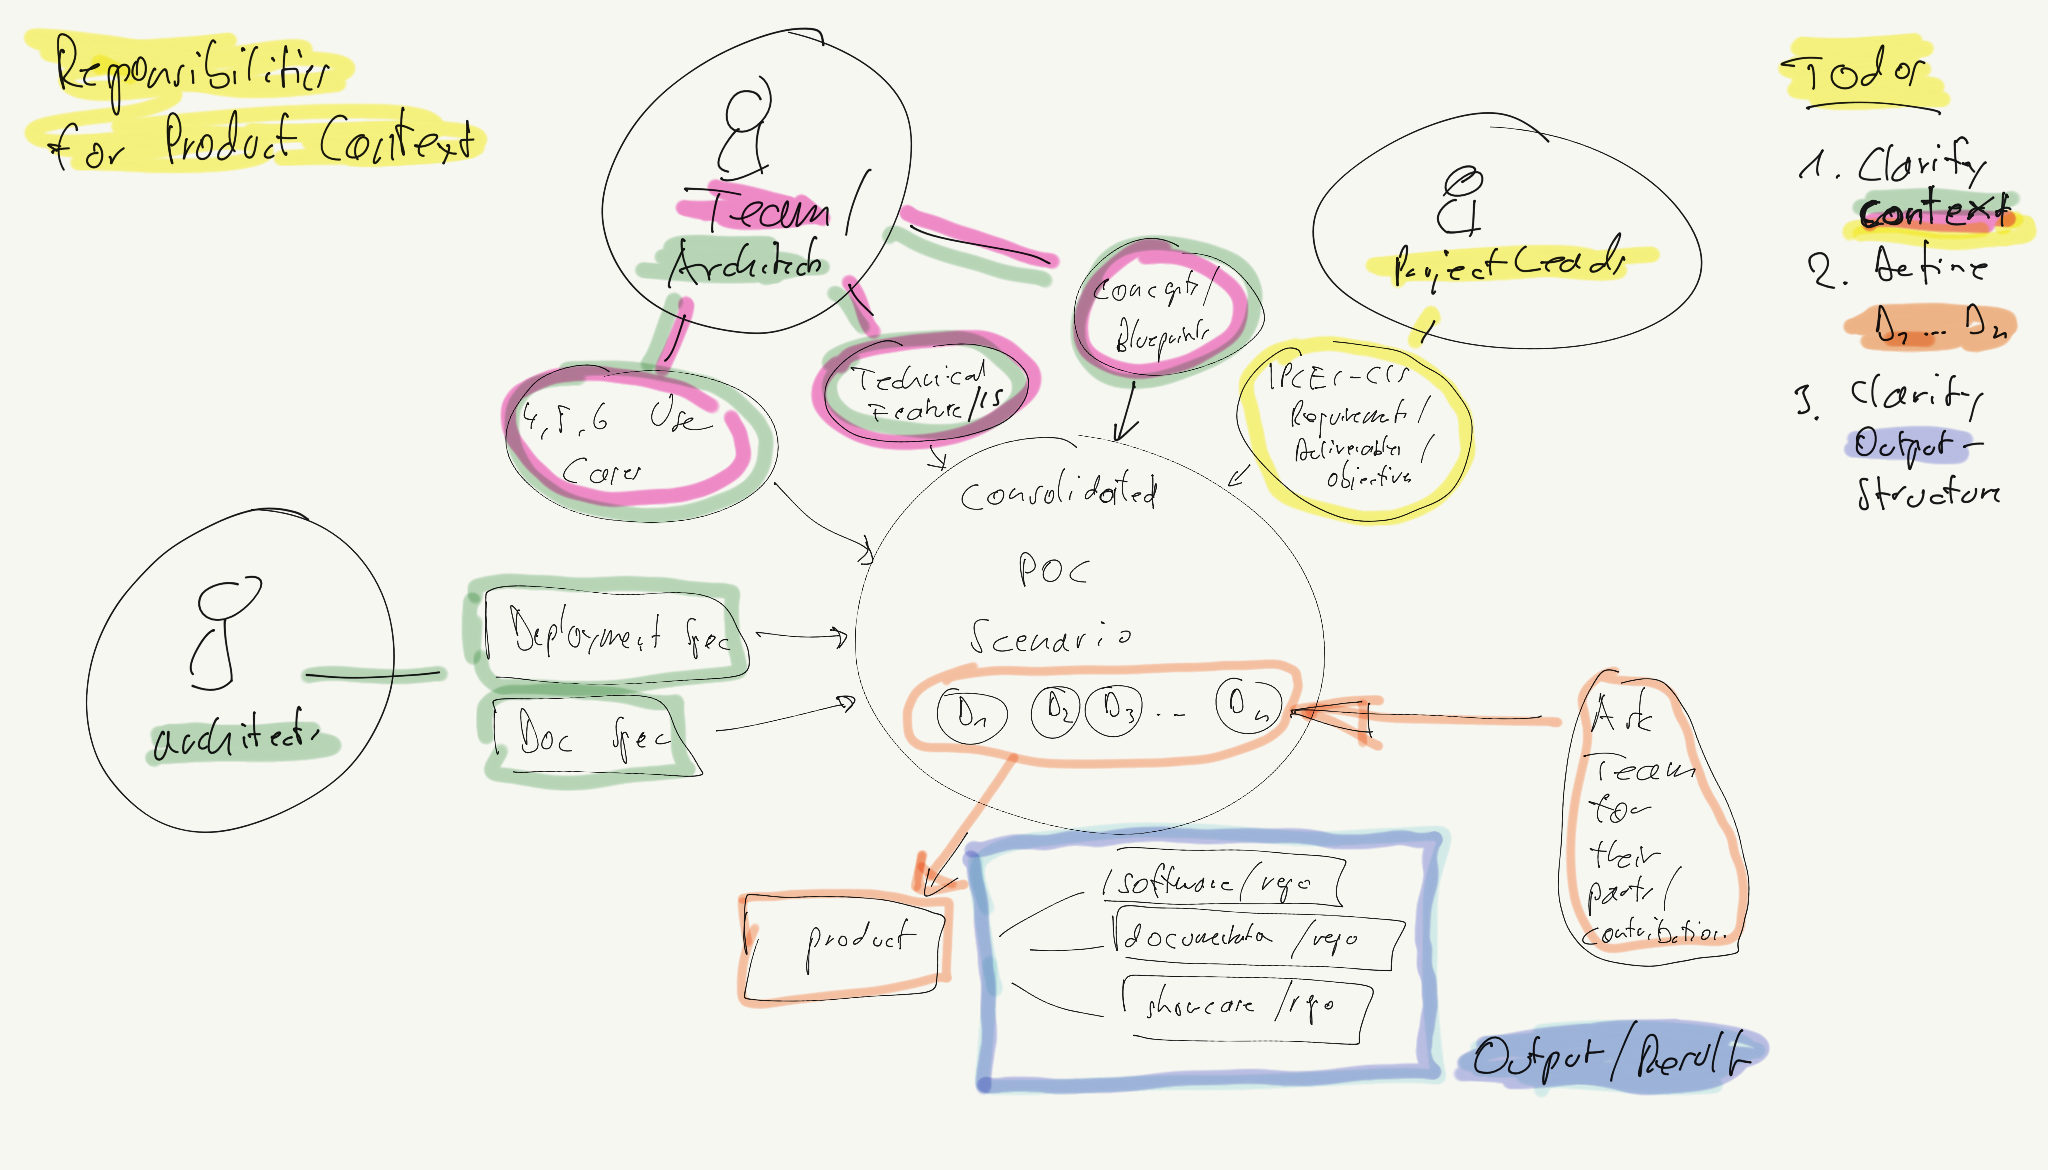 Reponsibilities
for Product Context
Team /
Architects
Project Leads
Todos
1. Clarify
context
2. Define
D1 ... Dn
3. Clarify
Output-
Structure
Concepts/
Blueprints
Technical
Feature/
4, 5, 6 Use
Cases
IPCEI-CIS
Requirements/
Deliverables/
Objectives
Consolidated
POC
Scenario
D1 D2 D3 ... Dn
architects
Deployment Spec
Doc Spec
Ask
Team
for
their
parts/
contribution.
product
software/repo
documentation /repo
showcase /repo
Output/Result